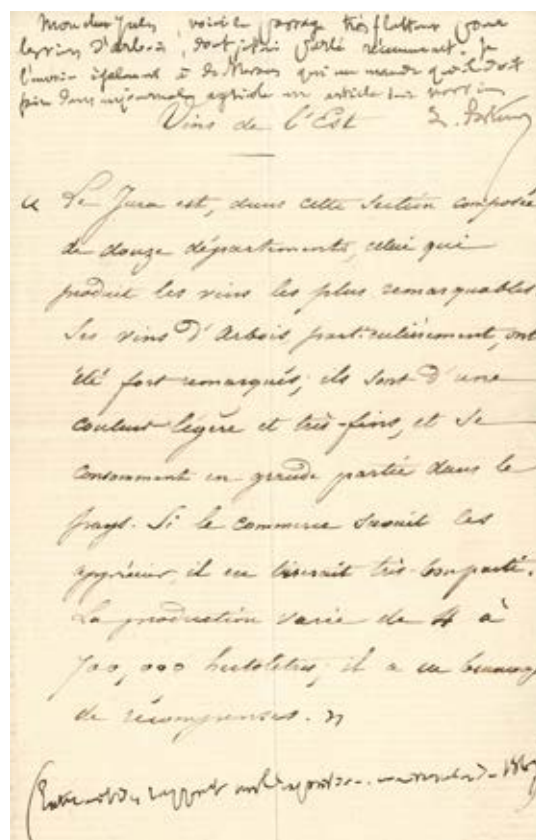 Mon cher Jules, voici le passage très flatteur pour
les vins d'arbois, dont j'ai parlé récemment. Je
l'envoie également à de qui me mande qu'il doit
faire dans un journal agricole un article sur nos vins
Vins de l'Est
« Le Jura est, dans cette section composée
de douze départements, celui qui
produit les vins les plus remarquables
Ses vins d'Arbois particulièrement, ont
été fort remarqués; ils sont d'une
couleur légère et très-fins, et se
consomment en grande partie dans le
pays. Si le commerce savait les
apprécier, il en tirerait très-bon parti.
La production varie de 4 à
700,000 hectolitres; il a eu beaucoup
de récompenses. »
(Extrait du rapport sur l'exposition